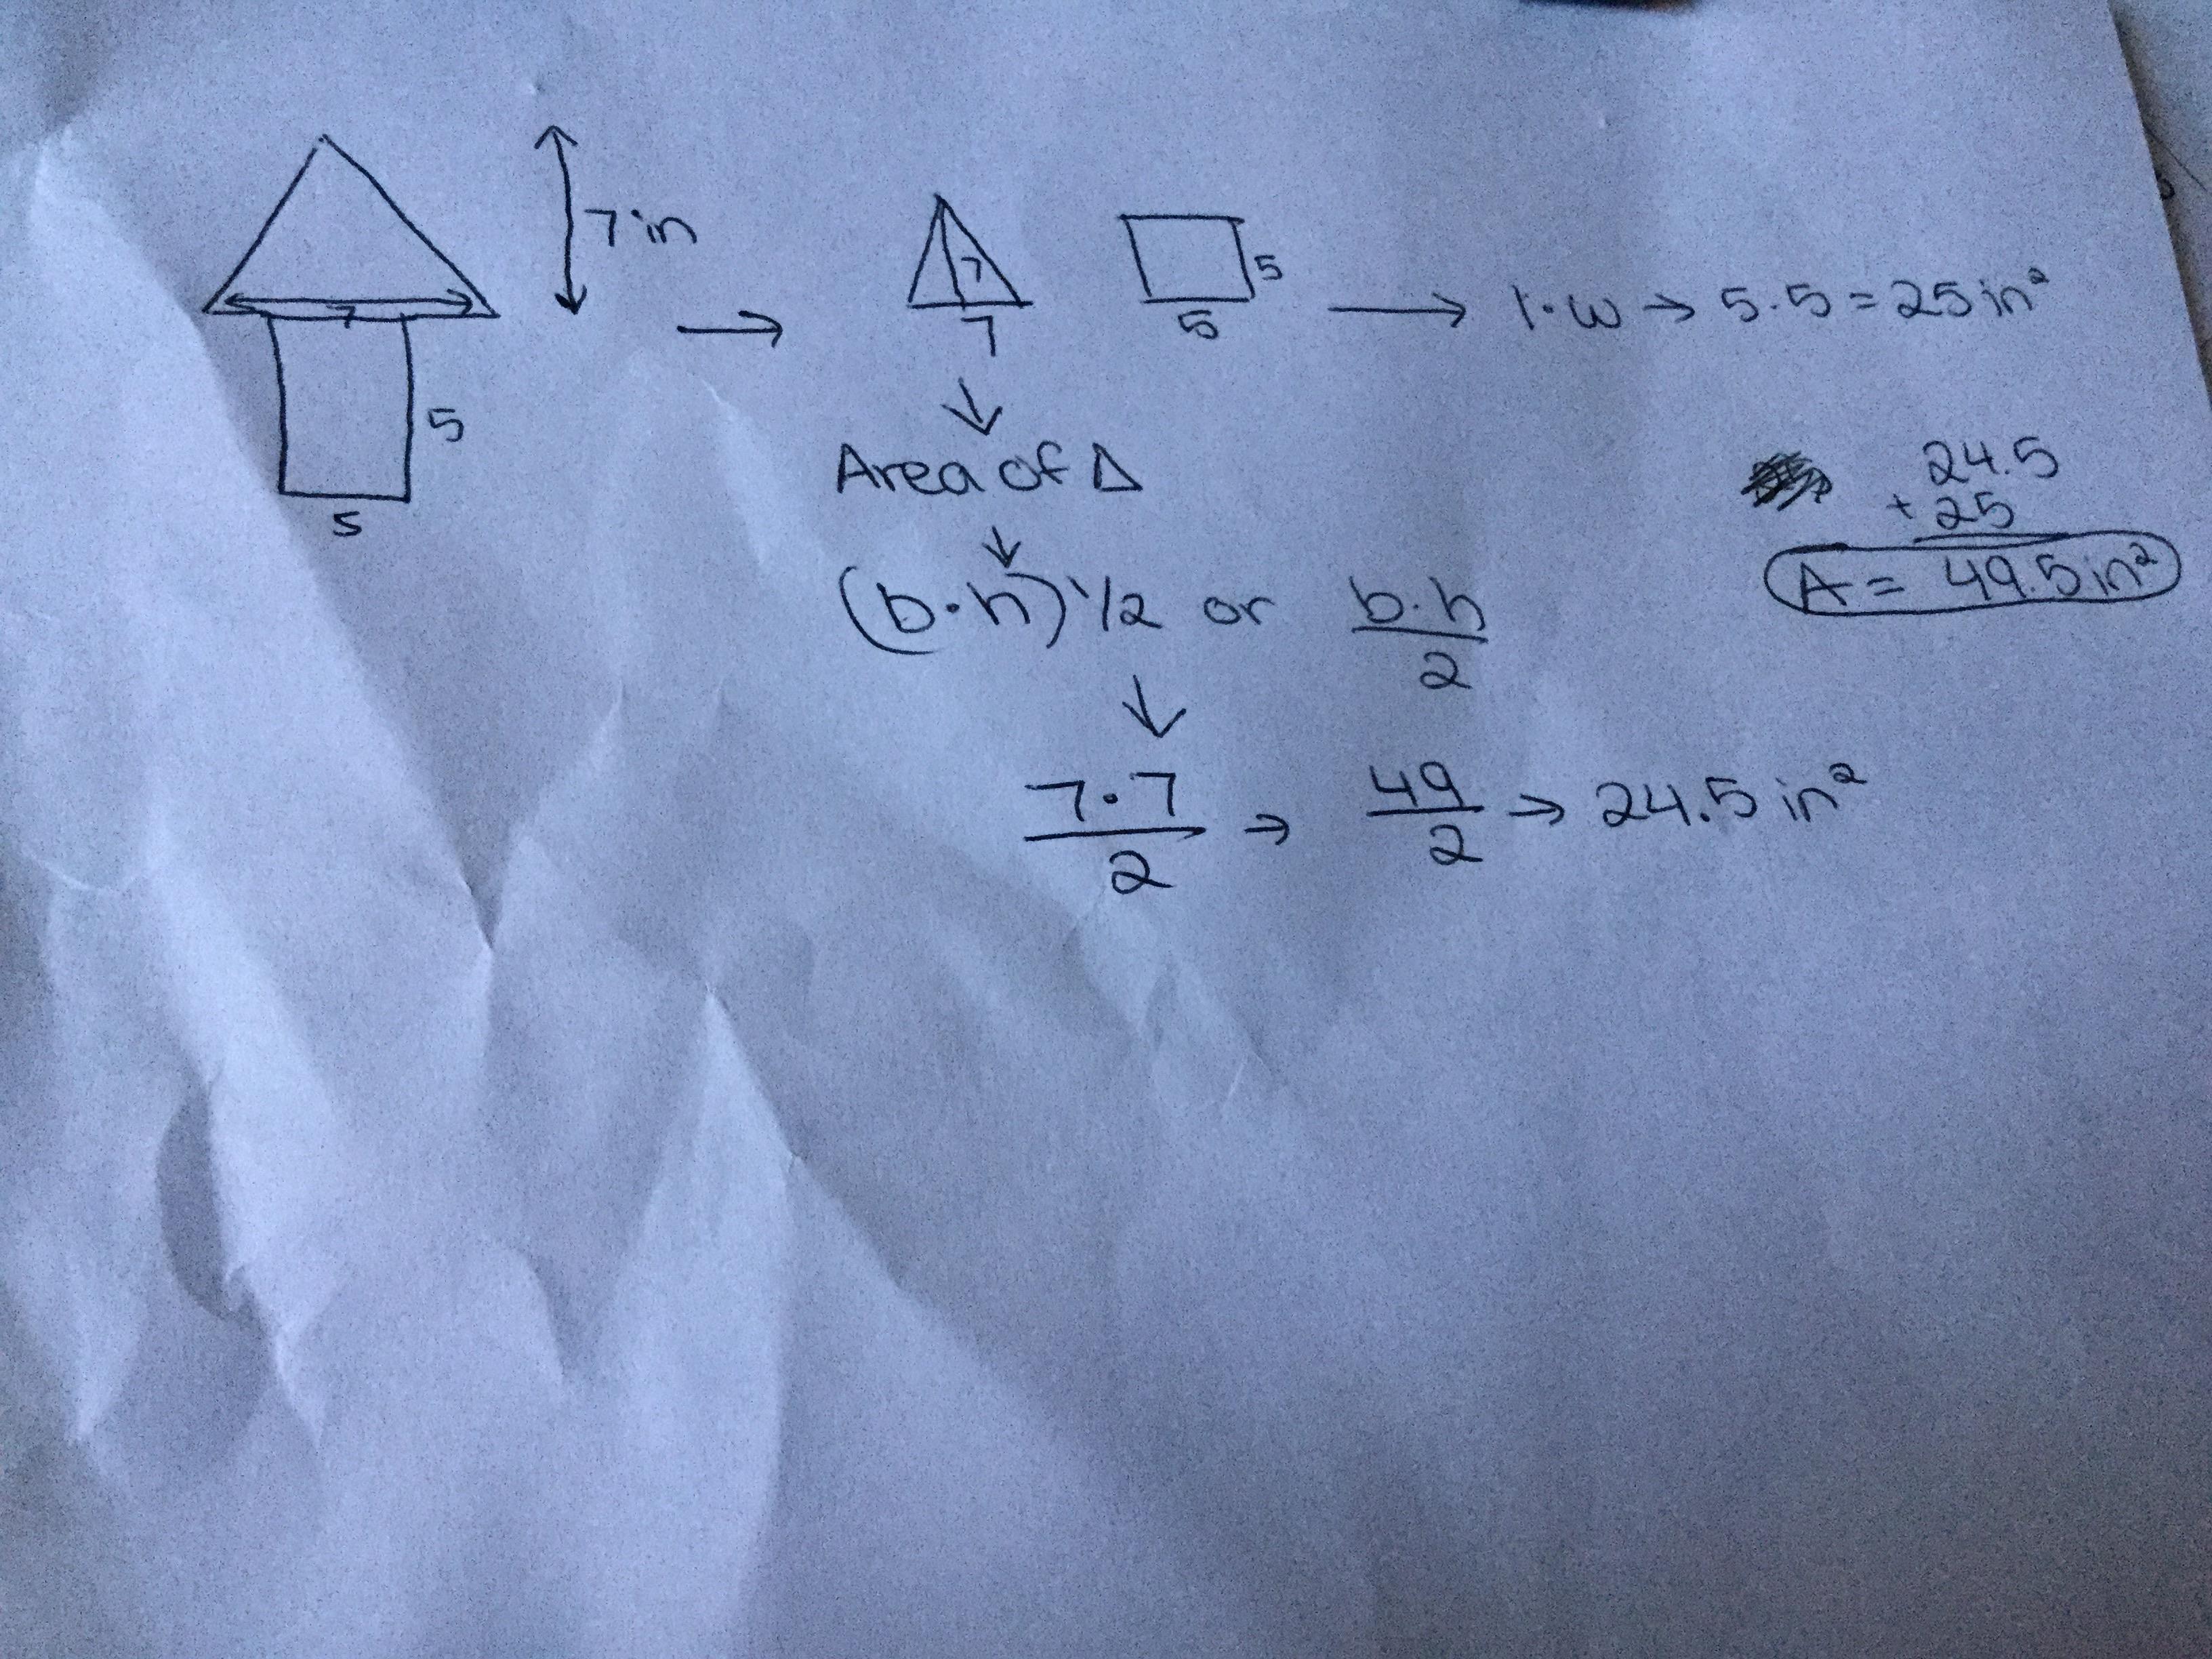 7 in
7
5
5
7
7
5
5
l·w → 5·5 = 25 in²
Area of Δ
(b·h) 1/2 or b·h/2
7·7/2 → 49/2 → 24.5 in²
24.5
+ 25
A = 49.5 in²